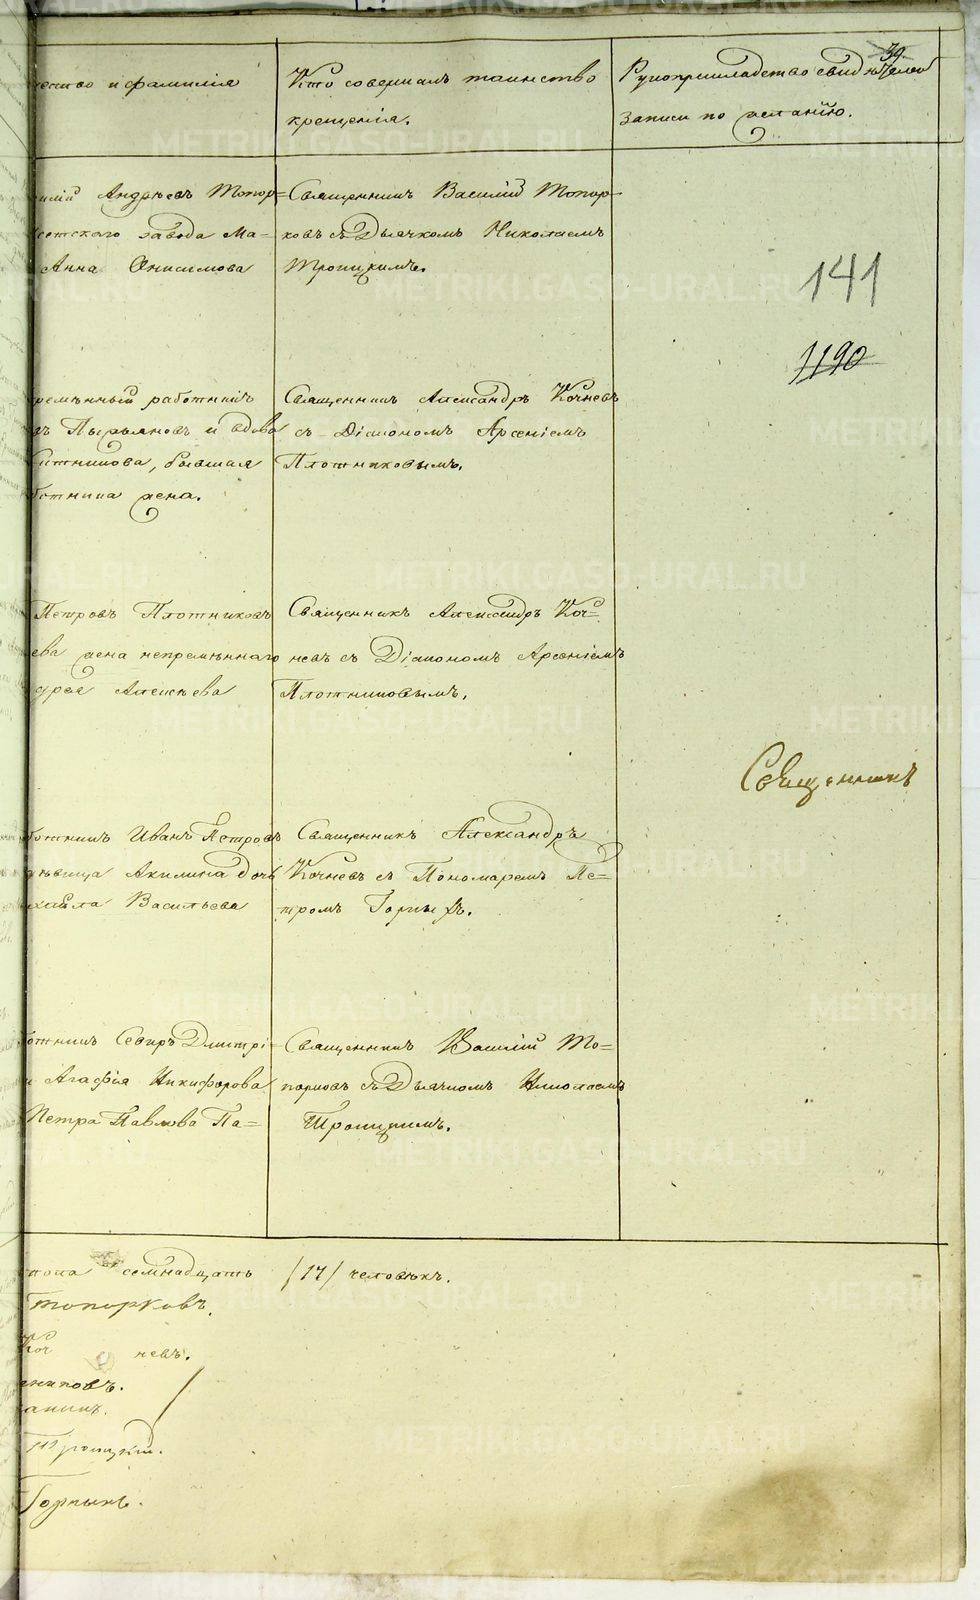 39
чество и фамилія
Кто совершалъ таинство
крещенія.
Рукоприкладство свидѣтелей
записи по желанію.
силій Андреевъ Топор=
сетскаго завода Ма=
Анна Онисимова
Священникъ Василій Топор
ковъ съ Дьячкомъ Николаемъ
Троицкимъ.
141
1190
ремѣнный работникъ
въ Пырьяновъ и вдова
ситникова, бывшая
ботника жена.
Священникъ Александръ Кочневъ
съ Діакономъ Арсеніемъ
Плотниковымъ.
Петровъ Плотниковъ
ева жена непремѣннаго
дрея Алексѣева
Священникъ Александръ Коч=
невъ съ Діакономъ Арсеніемъ
Плотниковымъ.
Священникъ
ботникъ Иванъ Петровъ
дѣвица Акилина дочь
хайла Васильева
Священникъ Александръ
Кочневъ съ Пономаремъ Пе=
тромъ Горныхъ.
ботникъ Севиръ Дмитрі=
и Агафья Никифорова
Петра Павлова Па=
Священникъ Василій То=
порковъ съ Дьячкомъ Николаемъ
Троицкимъ.
пола семнадцать /17/ человѣкъ.
Топорковъ.
Коч невъ.
никовъ.
Троицкій.
METRIKI.GASO-URAL.RU